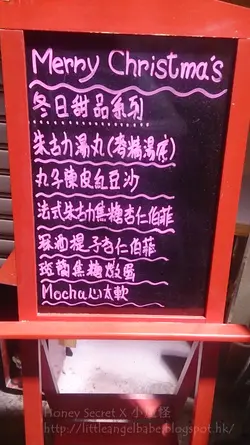 Merry Christma's
冬日甜品系列
朱古力湯丸(香橙湯底)
丸子陳皮紅豆沙
法式朱古力焦糖杏仁伯菲
麻油提子杏仁伯菲
斑蘭焦糖燉蛋
Mocha心太軟
Honey Secret X 小
http://littleangelbabe.blogspot.hk/